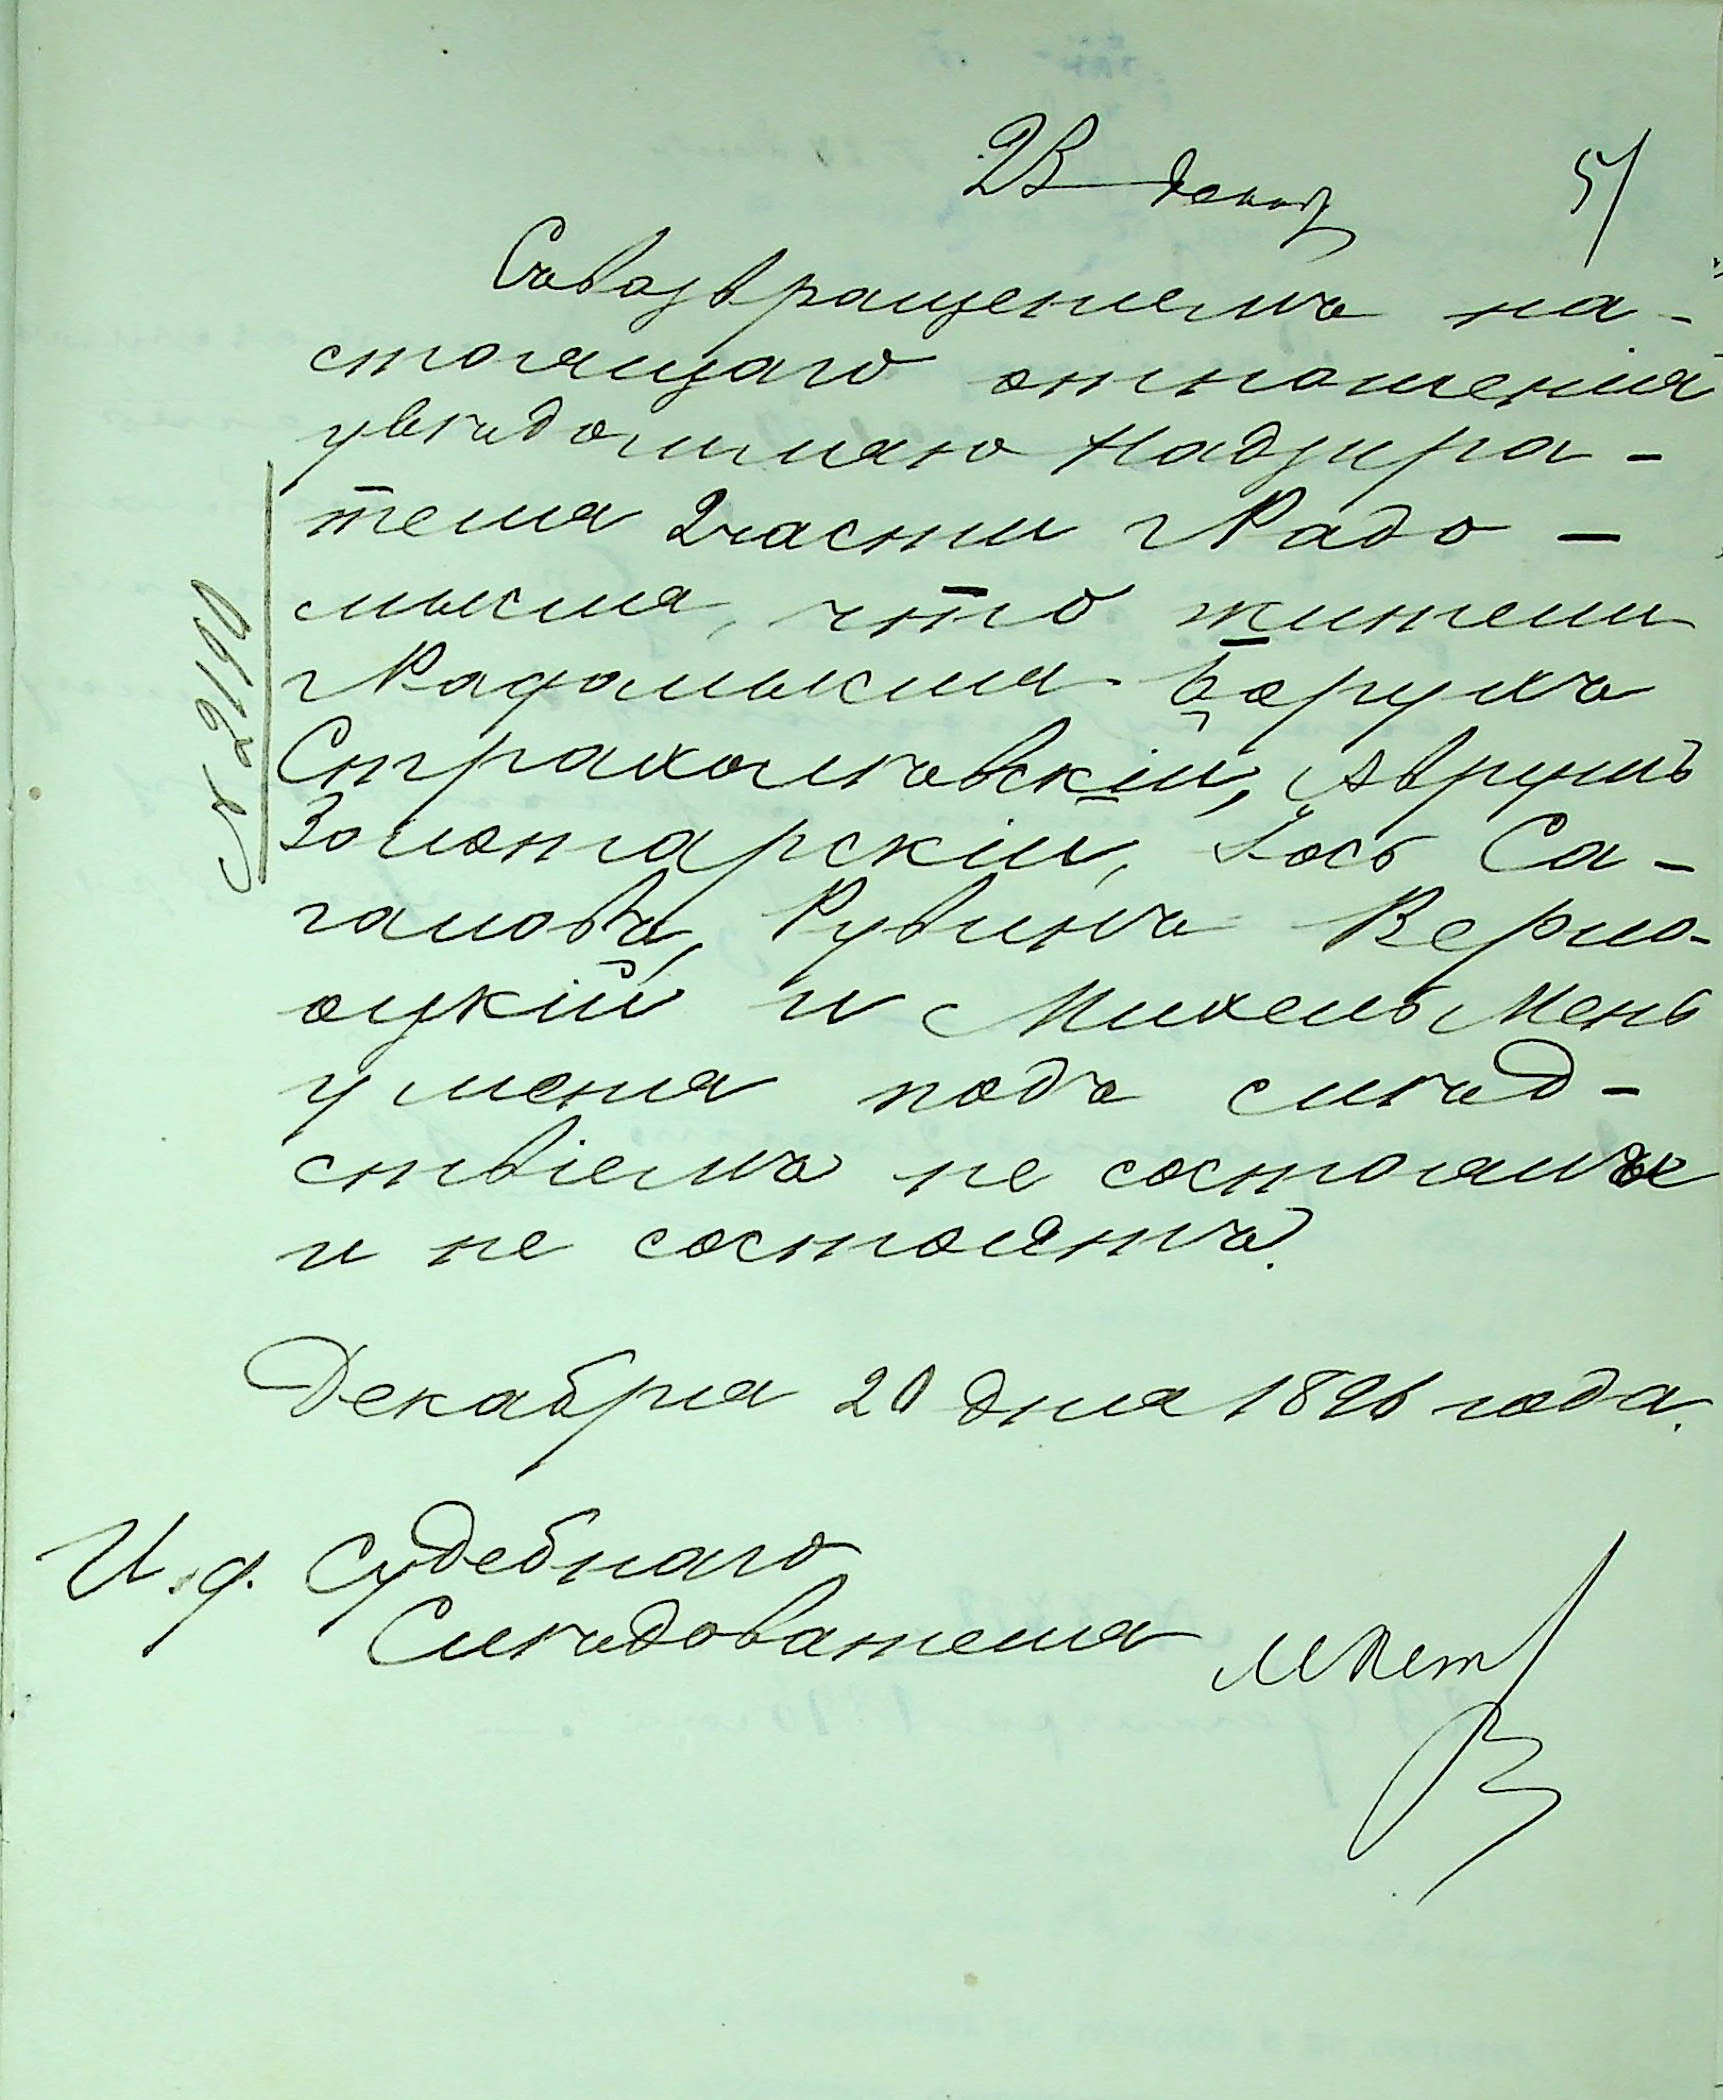 23 декаб
51
Съ возвращеніемъ на-
стоящаго отношенія
увѣдомляю Надзира-
теля 2 части г Радо-
мысля, что жители
г Радомысля Борухъ
Страхолѣвскій, Аврумъ
Золотарскій, Іось Са-
галовъ, Рувинъ Верло-
оцкій и Михель Мень
у меня подъ слѣд-
ствіемъ не состояли
и не состоятъ.
№ 2190
Декабря 20 дня 1896 года.
И. д. Судебнаго
Слѣдователя